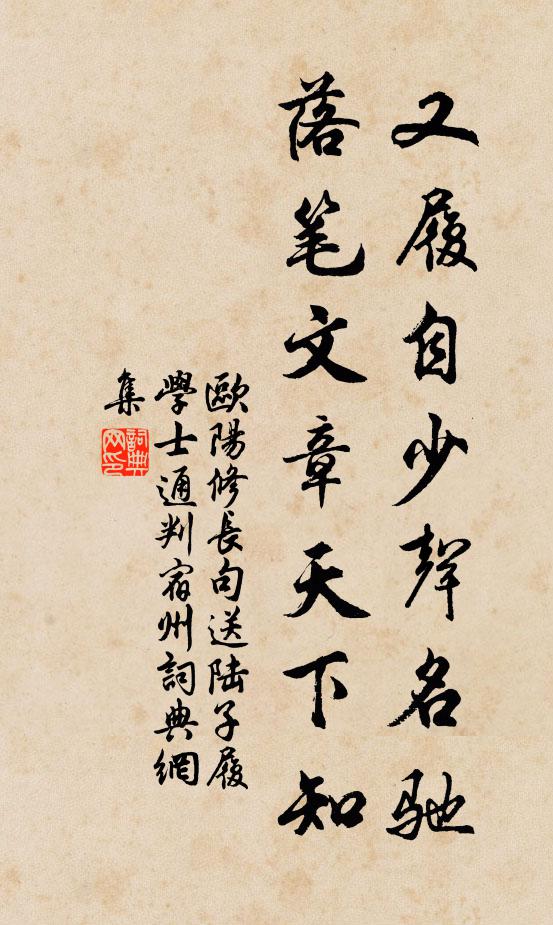 又履自少聲名馳
落笔文章天下知
歐陽修長句送陸子履
學士通判宿州詞典網
集
詞典
网印